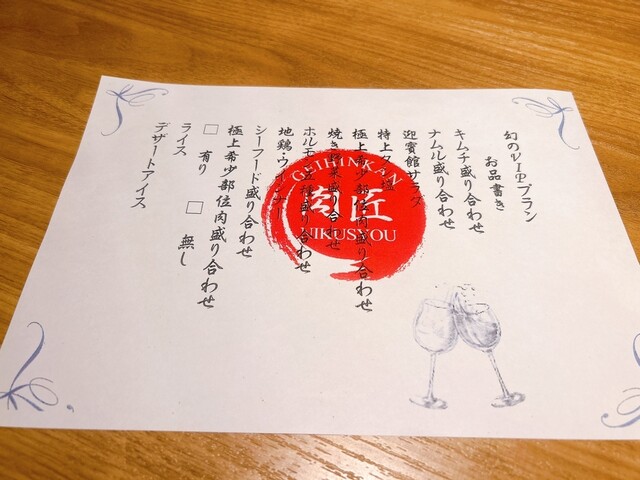 幻のVIPプラン
お品書き
キムチ盛り合わせ
ナムル盛り合わせ
迎賓館サラダ
特上タン塩
極上希少部位肉盛り合わせ
焼き野菜盛り合わせ
ホルモン五種盛り合わせ
地鶏・ウインナー
シーフード盛り合わせ
極上希少部位肉盛り合わせ
□ 有り □ 無し
ライス
デザートアイス
GEIHINKAN
肉匠
NIKUSYOU